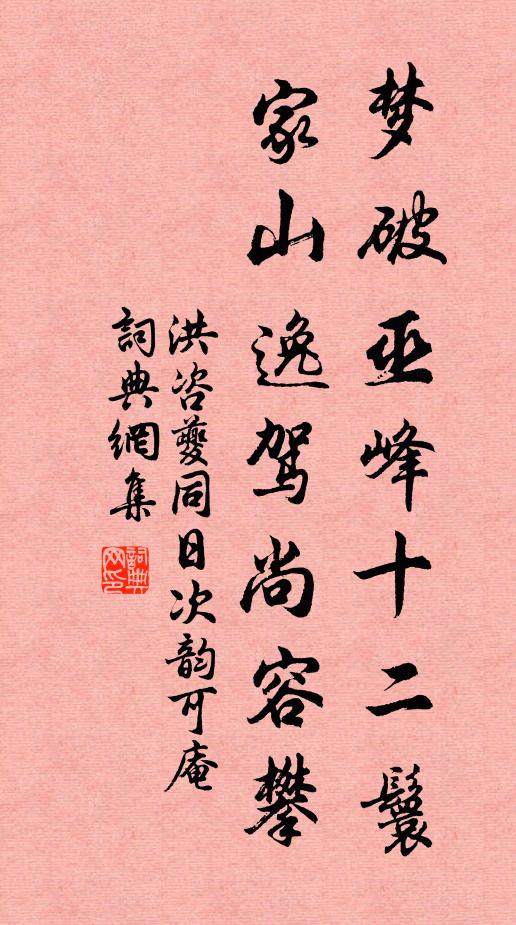 梦破巫峰十二鬟
家山逸驾尚容攀
洪咨夔同日次韵可庵
詞典網集
詞典网印